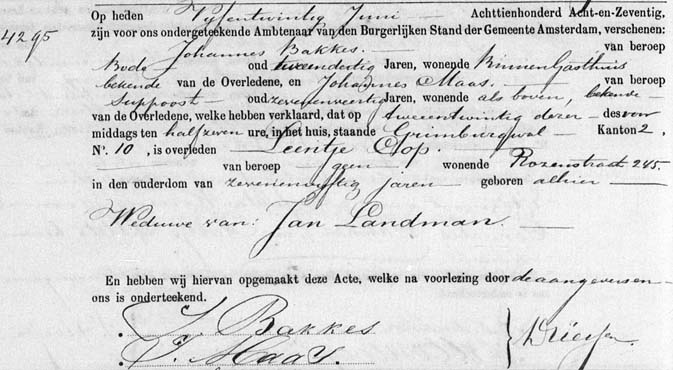 4295
Op heden Vijfentwintig Juni Achttienhonderd Acht-en-Zeventig,
zijn voor ons ondergeteekende Ambtenaar van den Burgerlijken Stand der Gemeente Amsterdam, verschenen:
Johannes Bakkes. — van beroep
Bode oud tweeendertig Jaren, wonende Binnen Gasthuis
bekende van de Overledene, en Johannes Maas. — van beroep
Suppoost — oud zevenenveertig Jaren, wonende als boven, bekende
van de Overledene, welke hebben verklaard, dat op tweeentwintig dezer — des voor
middags ten half zeven ure, in het huis, staande Grimburgwal — Kanton 2,
No. 10, is overleden Leentje Clop.
van beroep geen wonende Rozenstraat 245.
in den ouderdom van zevenenvyftig jaren geboren alhier —
Weduwe van: Jan Landman. —
En hebben wij hiervan opgemaakt deze Acte, welke na voorlezing door de aangevers en
ons is onderteekend.
J. Bakkes
J. Maas.